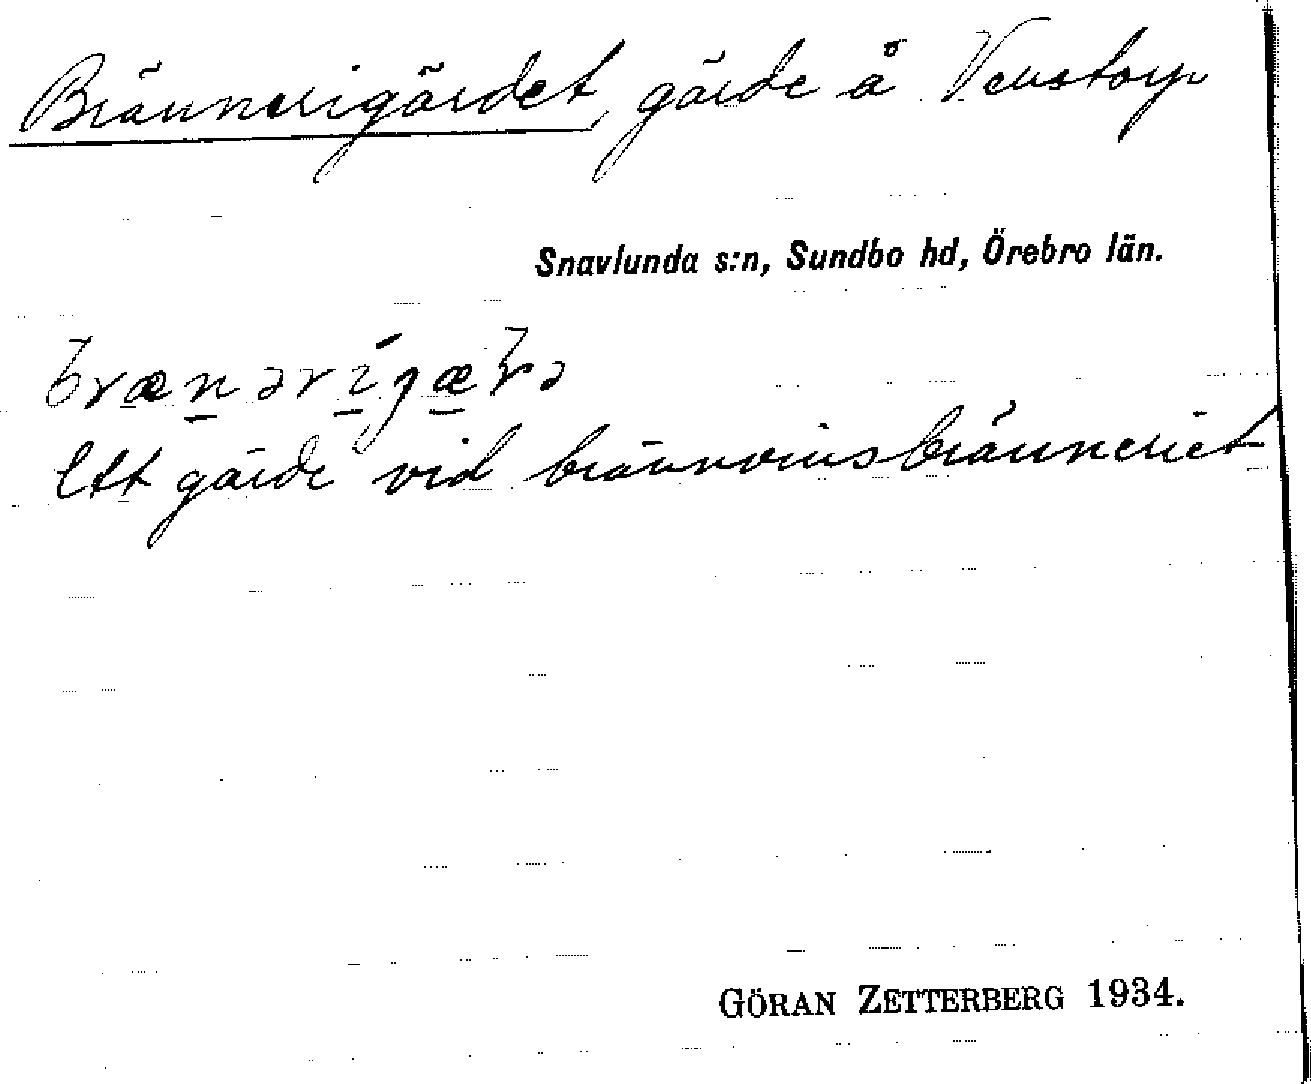 Brännerigärdet, gärde å Venstorp
Snavlunda s:n, Sundbo hd, Örebro län.
Ett gärde vid brännvinsbränneriet
GÖRAN ZETTERBERG 1934.